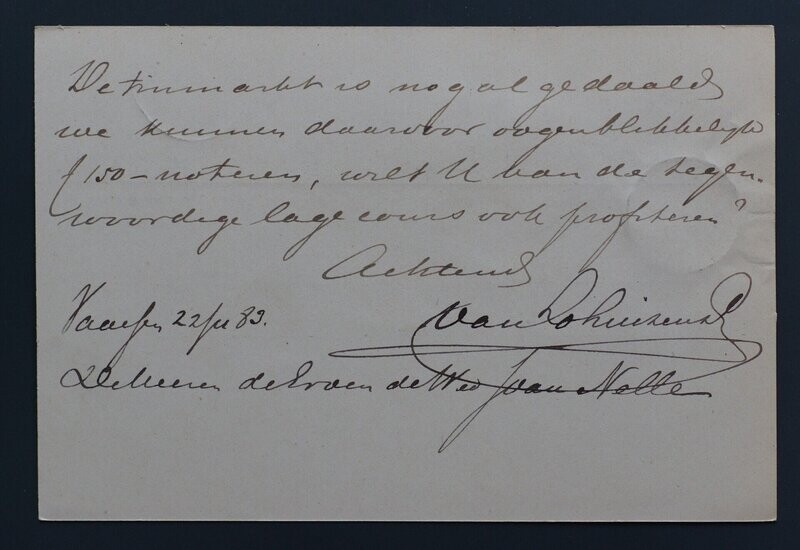 De tinmarkt is nog al gedaald
we kunnen daarvoor oogenblikkelijk
f 150 - noteren, wilt U van de tegen-
woordige lage cours ook profiteren?
Achtend
Vaassen 22/11 83. van Lohuizen
De Heeren de Erven de Wed J van Nelle